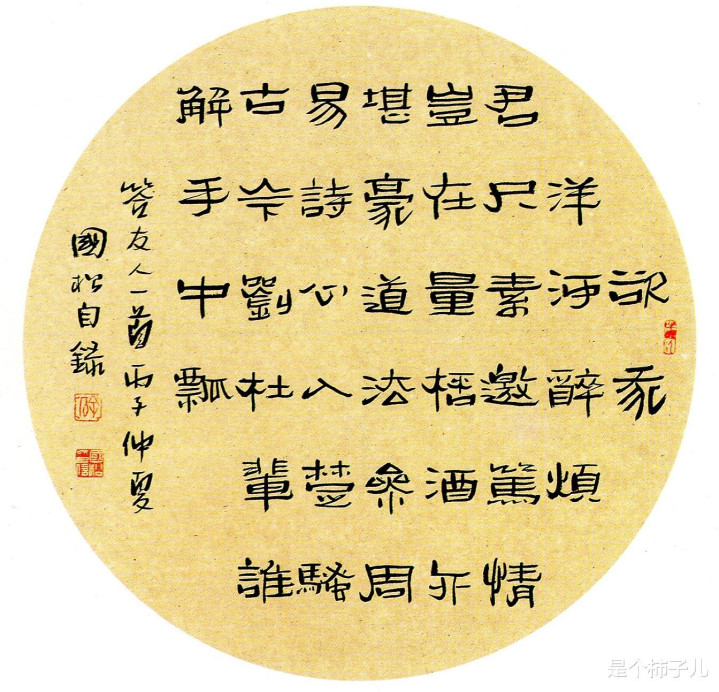 欲我
洋河醉煩
君尺素邀篤情
豈在量桮酒不
堪豪道法參周
易詩心入楚騷
古今劉杜輩誰
解手中瓢
答友人一首丙子仲夏
國松自錄
是个柿子儿